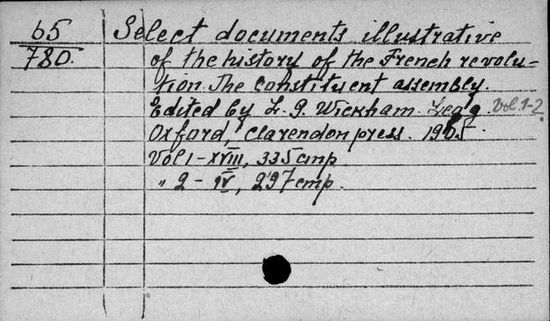 65 Select documents illustrative
780. of the history of the French revolu-
tion. The constituent assembly.
Edited by L. G. Wickham Legg. Vol. 1-2
Oxford, Clarendon press. 1905.
Vol 1 - XVIII, 335 стр
" 2 - IV, 297 стр.